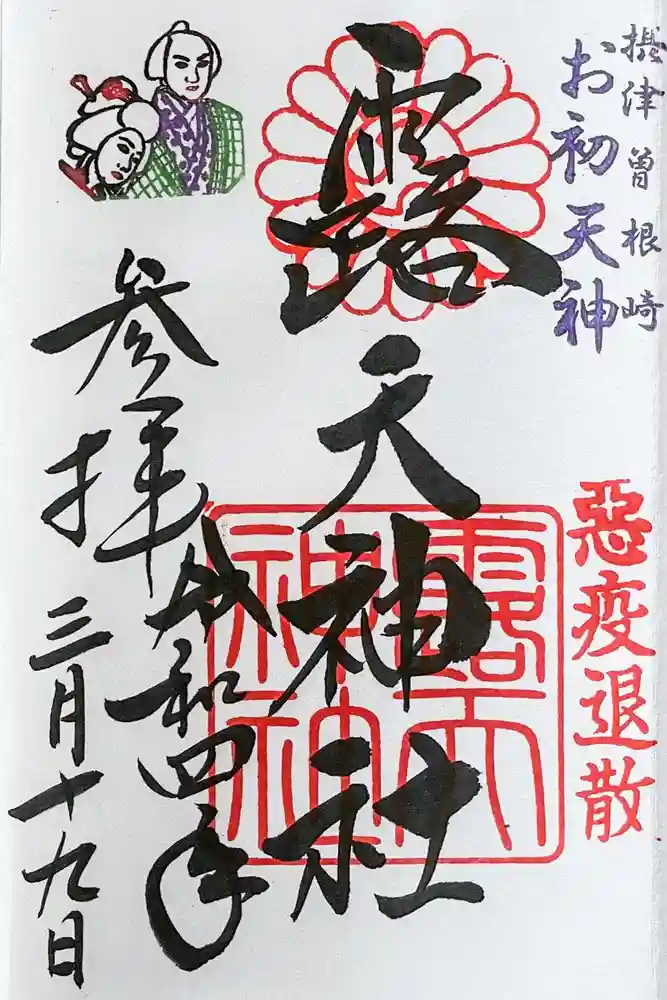 摂津曽根崎
お初天神
悪疫退散
露天神社
露天神社
令和四年
参拝
三月十九日